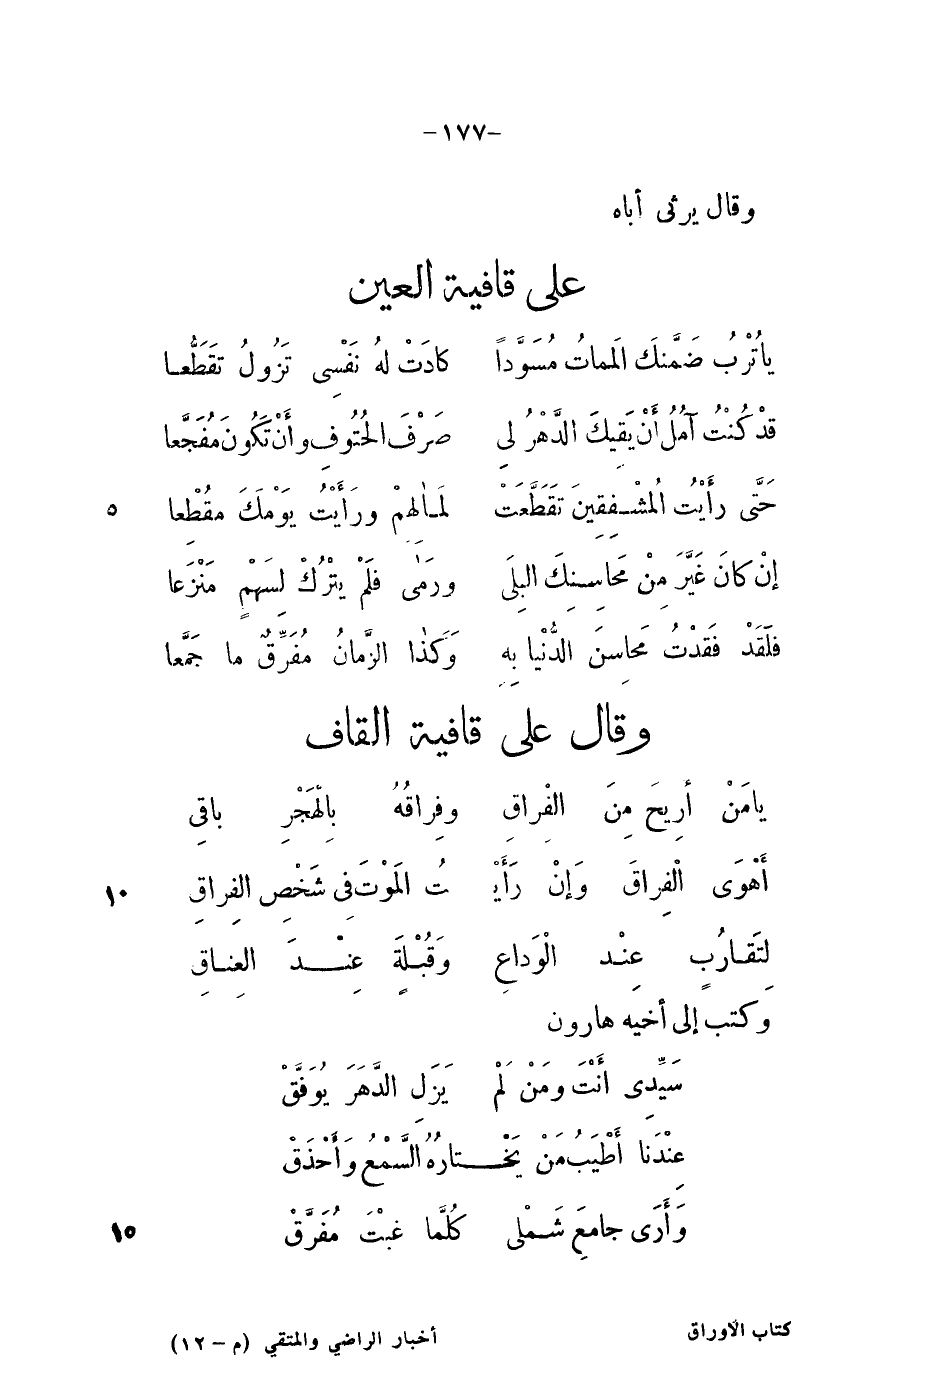 -١٧٧-
وقال يرثى أباه
على قافية العين
ياتُرْبُ ضَمَّنَكَ الَمماتُ مُسَوَّداً كادَتْ لهُ نَفْسِى تَزُولُ تقَطُّعا
قدْ كُنْتُ آمُلُ أَنْ يَقِيكَ الدَّهْرُ لِى صَرْفَ الحُتُوفِ وأَنْ تَكُونَ مُفَجَّعا
حَتَّى رأَيْتُ المُشْفِقِينَ تقَطَّعَتْ لَمآلِهِمْ ورَأَيْتُ يَوْمَكَ مقُطْعِا ٥
إنْ كانَ غَيَّرَ مِنْ مَحَاسِنِكَ البِلَى ورَمٰى فَلَمْ يتْرُكْ لِسَهْمٍ مَنْزَعا
فلَقَدْ فَقَدْتُ مَحاسِنَ الدُّنْيا بِهِ وَكَذٰا الزَّمانُ مُفَرِّقٌ ما جَمَّعا
وقال على قافية القاف
يامَنْ أرِيحَ مِنَ الفْرِاقِ وفِراقُهُ بِالْهَجْرِ باقِى
أَهْوَى الْفِراقَ وَإنْ رَأَيْتُ المَوْتَ فِى شَخْصِ الفِراقِ ١٠
لِتَقَارُبٍ عِنْد الْوَداعِ وَقُبْلَةٍ عِنْدَ العِناقِ
وكتب إلى أخيه هارون
سَيِّدِى أنْتَ ومَنْ لَمْ يَزَلِ الدَّهَرَ يُوَفَّقْ
عِنْدَنا أَطْيَبُ مَنْ يَخْتارُهُ السَّمْعُ وأَحْذَقْ
وَأَرَى جامعَِ شَمْلى كُلَّما غِبْتَ مُفَرَّقْ ١٥
كتاب الأوراق أخبار الراضي والمتقي (م – ١٢)